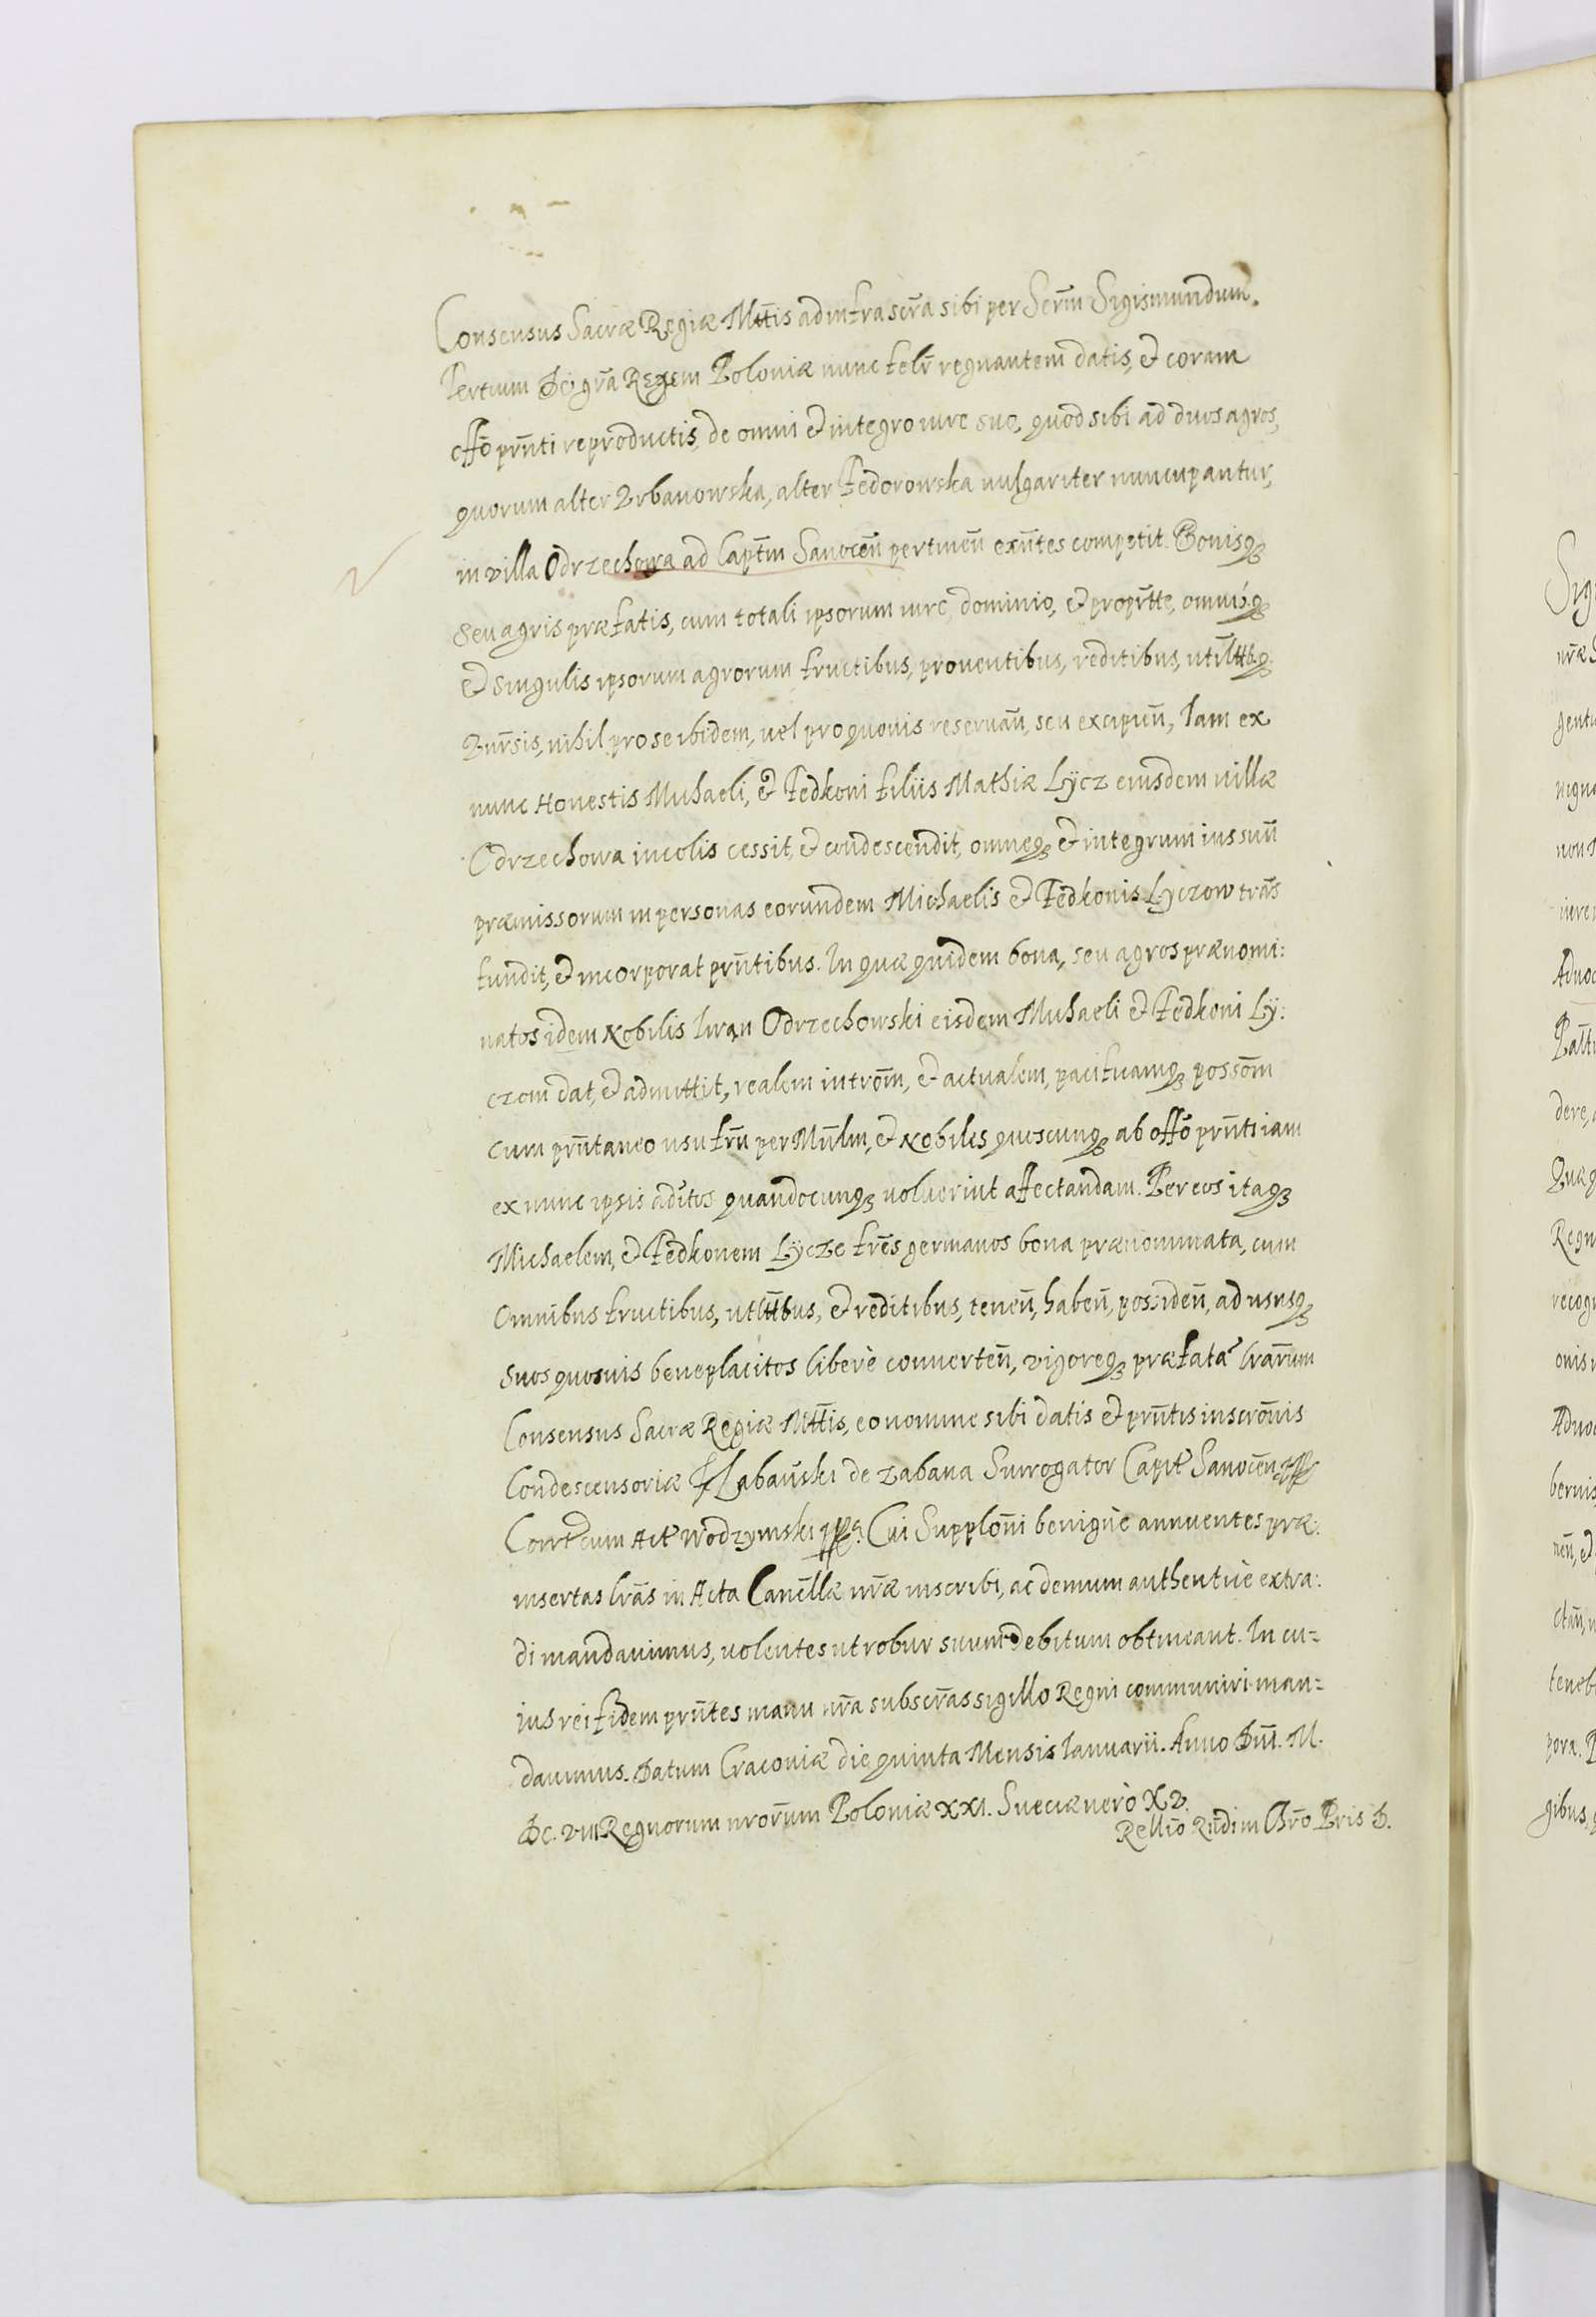 Consensus Sacræ Regiæ Mttis ad infra scra sibi per Serm Sigismundum.
Tertium Dei gra Regem Poloniæ nunc felr regnantem datis, et coram
offo prnti reproductis, de omni et integro iure suo, quod sibi ad duos agros,
quorum alter Vrbanowska, alter Fedorowska vulgariter nuncupantur,
in villa Odrzechowa ad Captm Sanocen pertinen exntes competit. Bonisq
seu agris præfatis, cum totali ipsorum iure, dominio, et proprtte, omnibq
et singulis ipsorum agrorum fructibus, prouentibus, reditibus, utilttbq
Vnrsis, nihil pro se ibidem, uel pro quouis reseruan, seu excipien, Iam ex
nunc Honestis Michaeli, et Fedkoni filiis Mathiæ Lÿcz eiusdem uillæ
Odrzechowa incolis cessit, et condescendit, omneq et integrum ius suu
præmissorum in personas eorundem Michaelis et Fedkonis Lÿczow tras
fundit, et incorporat prntibus. In quæ quidem bona, seu agros prænomi:
natos idem Nobilis Iwan Odrzechowski eisdem Michaeli et Fedkoni Lÿ:
czom dat, et admittit, realem introm, et actualem, pacificamq possom
cum prntaneo usu fru per Mnlm, et Nobiles quoscunq ab offo prnti iam
ex nunc ipsis aditos quandocunq uoluerint affectandam. Per eos itaq
Michaelem, et Fedkonem Lÿcze fres germanos bona prænominata, cum
omnibus fructibus, utilttbus, et reditibus, tenen, haben, possiden, ad ususq
suos quosuis beneplacitos liberè conuerten, vigoreq præfata lrarum
Consensus Sacræ Regiæ Mttis, eo nomine sibi datis et prntis inscronis
Condescensoriæ Labański de Zabana Surrogator Capit Sanocen
Corrt cum Act Wodzynski. Cui Supploni benignè annuentes præ:
insertas lras in Acta Cancllæ nræ inscribi, ac demum authenticè extra:
di mandauimus, uolentes ut robur suum debitum obtineant. In cu-
ius rei fidem prntes manu nra subscras sigillo Regni communiri man-
dauimus. Datum Cracouiæ die quinta Mensis Ianuarii. Anno Dni. M.
DC. VIII Regnorum nrorum Poloniæ XXI. Sueciæ uerò XV.
Rellio Rndi in Chro Pris D.